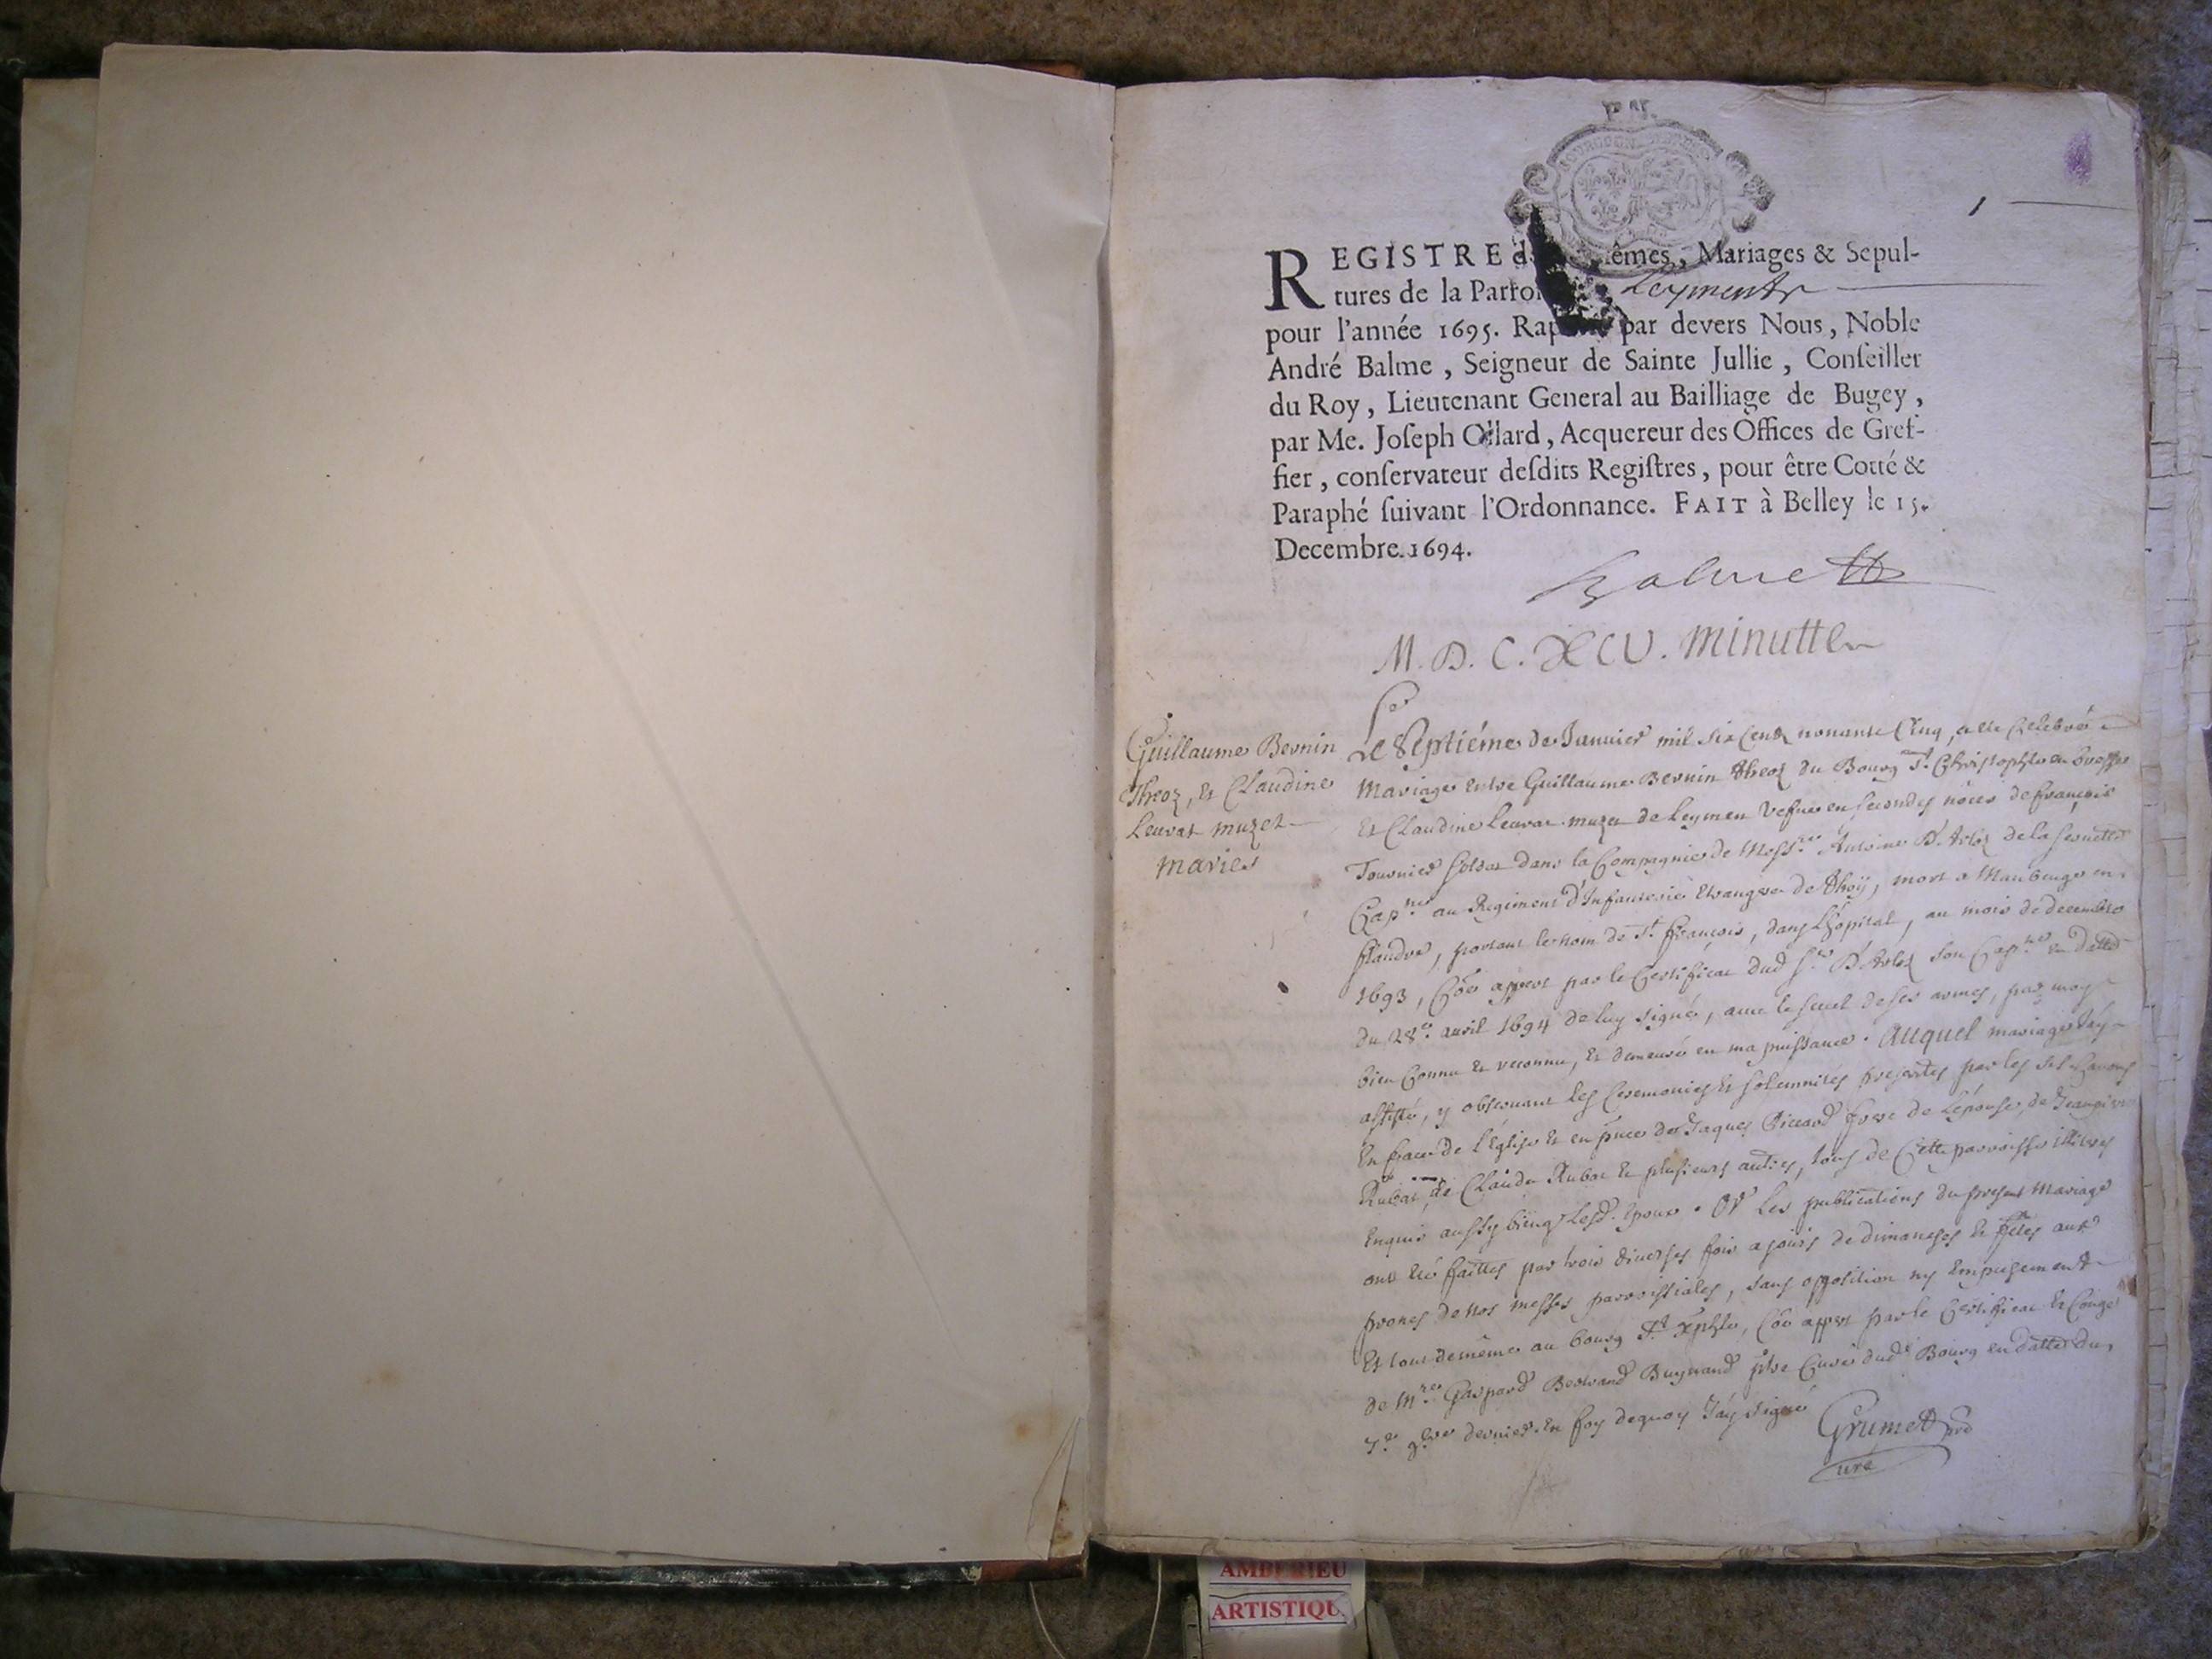 1
REGISTRE d êmes, Mariages & Sepul-
tures de la Parroi Leyment
pour l'année 1695. Rap par devers Nous, Noble
André Balme, Seigneur de Sainte Jullie, Conſeiller
du Roy, Lieutenant General au Bailliage de Bugey,
par Me. Joſeph Ollard, Acquereur des Offices de Gref-
fier, conſervateur deſdits Regiſtres, pour être Cotté &
Paraphé ſuivant l'Ordonnance. FAIT à Belley le 15.
Decembre. 1694.
Balme
M. D. C. XCV. Minutte
Guillaume Bernin
Theoz, et Claudine
Leuvat muzet
mariés
Le Septiéme de Januier mil six Cents nonante Cinq, a été Celebré
Mariage entre Guillaume Bernin Theoz du Bourg St. Christophle en bresse
Et Claudine Leuvat muzet de Leyment Vefue en secondes nôces de françois
Tournier soldat dans la Compagnie de Messre Antoine D'Arloz de la seruette
Capne au Regiment d'Infanterie etrangere de Thoÿ, mort a Maubeuge en
flandre, portant le nom de St. françois, dans L'hôpital, au mois de decembre
1693, Côe appert par le Certificat dud Sr D'Arloz son Capne en datte
du 28e avril 1694 de luy signé, auec le seel de ses armes, par moy
bien Connu et reconnu, et demeuré en ma puissance. Auquel mariage J'ay
assisté, y obseruant les Ceremonies et solemnités prescrites par les sts Canons
En face de l'Eglise et en pnce de Jaques Piccard frere de L'épouse, de
Rubat, de Claude Rubat et plusieurs autres, tous de Cette parroisse illitres
Enquis aussy bien q Lesd. Epoux. Or Les publications du present Mariage
ont été faittes par trois diuerses fois a jours de dimanches et fêtes aux
prones de nos messes parroissiales, sans opposition ny Empechement
Et tout de même au bourg St Xphle, Côe appert par le Certificat et Congé
de Mre Gaspard Bertrand Buynand ptre Curé dudt Bourg en datte du
7e 9bre dernier. En foy dequoy J'ay signé
Grumet
Curé
AMBERIEU
ARTISTIQU